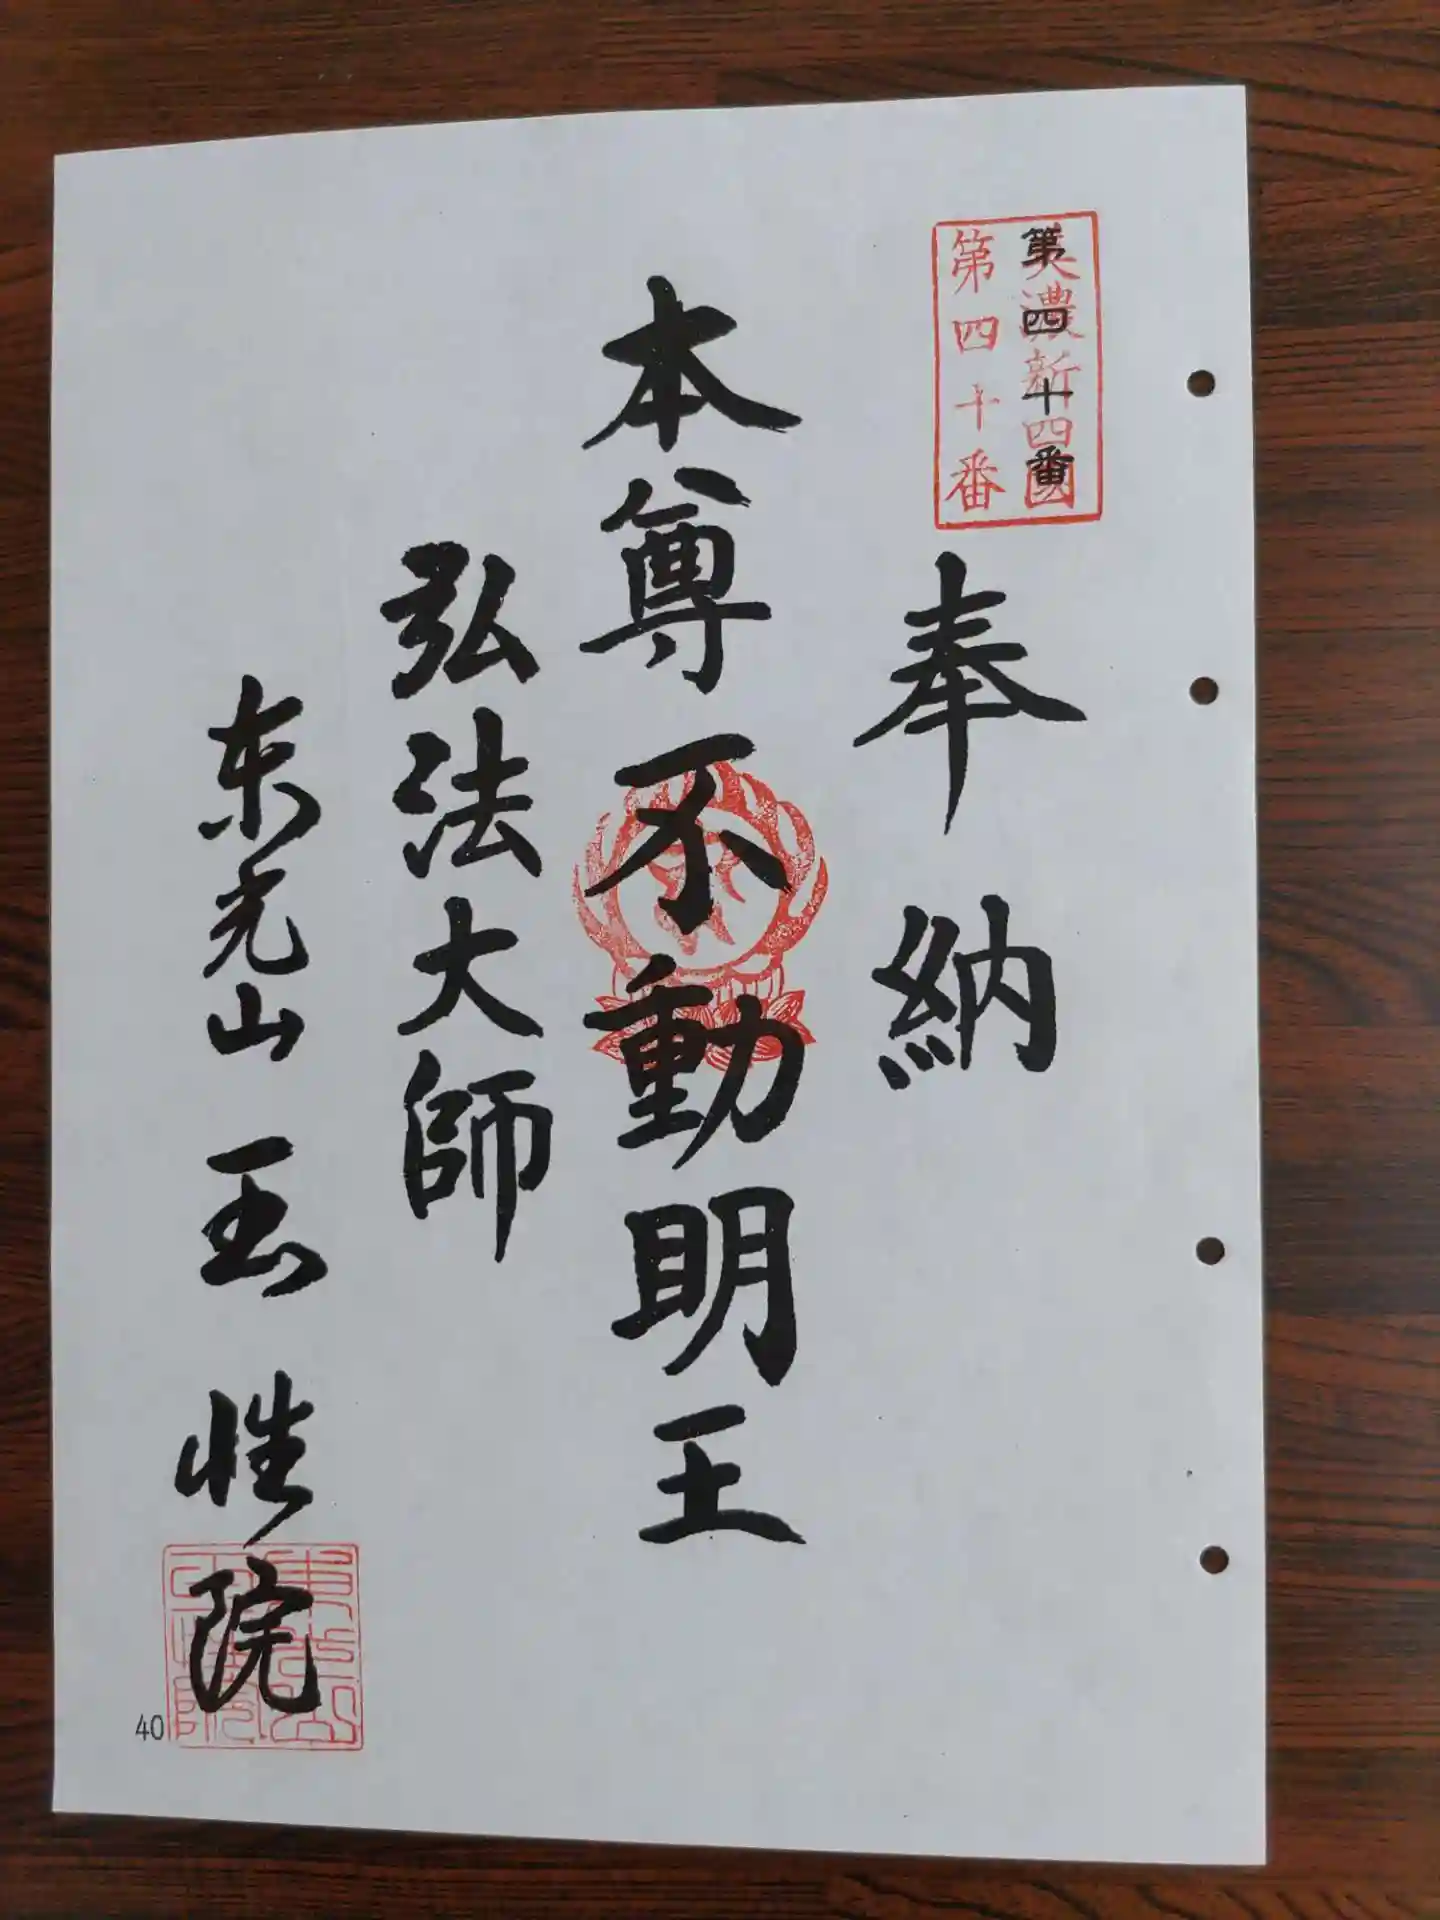 美濃新四国
第四十番
第四十番
奉納
本尊不動明王
弘法大師
东光山玉性院
40